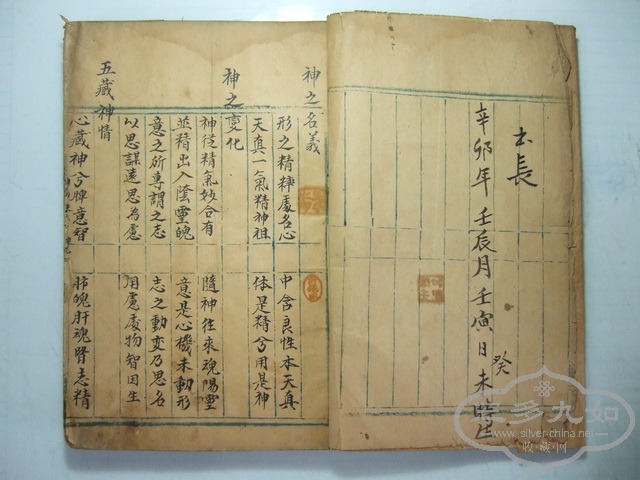 長
辛卯年壬辰月壬寅日未時生
癸
神之名義
形之精粹處名心 中含良性本天真
天真一氣精神祖 体是精兮用是神
神之變化
神從精氣妙合有 隨神往來魂陽靈
並精出入陰靈魄 意是心機未動形
意之所專謂之志 志之動變乃思名
以思謀遠思為慮 用慮處物智因生
五藏神情
心藏神兮脾意智 肺魄肝魂腎志精
長多九如
www.silver-china.net
收藏网